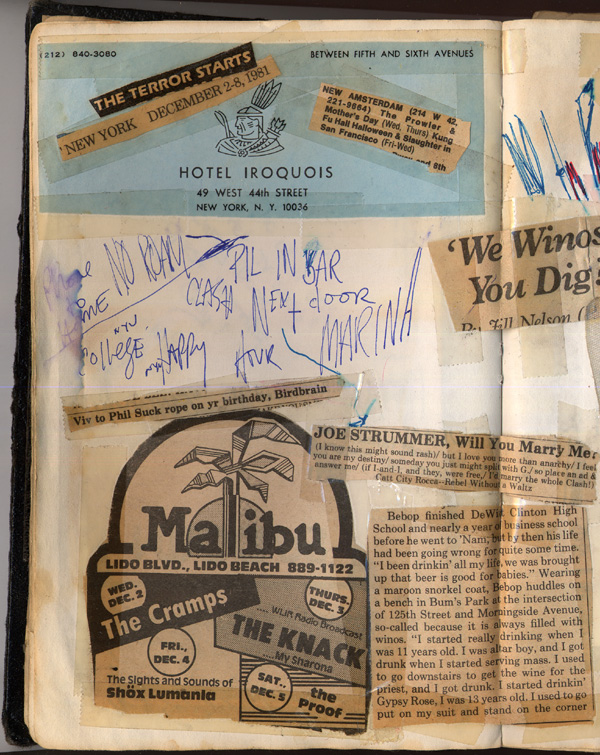 (212) 840-3080
BETWEEN FIFTH AND SIXTH AVENUES
THE TERROR STARTS
NEW YORK DECEMBER 2-8, 1981
NEW AMSTERDAM (214 W 42,
221-9664) The Prowler &
Mother's Day (Wed, Thurs) Kung
Fu Hall Halloween & Slaughter in
San Francisco (Fri-Wed)
and 8th
HOTEL IROQUOIS
49 WEST 44th STREET
NEW YORK, N. Y. 10036
NO ROAM
PIL IN BAR
CLASH NEXT dOOR
COllEGE
HAPPY HOUR MARINA
'We Winos
You Dig
By Jill Nelson (
Viv to Phil Suck rope on yr birthday, Birdbrain
JOE STRUMMER, Will You Marry Me?
(I know this might sound rash)/ but I love you more than anarchy/ I feel
you are my destiny/ someday you just might split with G./so place an ad &
answer me/ (if I-and-I, and they, were free,/ I'd marry the whole Clash!)
Catt City Rocca--Rebel Without a Waltz
Malibu
LIDO BLVD., LIDO BEACH 889-1122
WED.
DEC. 2
The Cramps
THURS.
DEC. 3
.... WLIR Radio Broadcast
THE KNACK
....My Sharona
FRI.,
DEC. 4
The Sights and Sounds of
Shöx Lumania
SAT.,
DEC. 5
the
Proof
Bebop finished DeWitt Clinton High
School and nearly a year of business school
before he went to 'Nam, but by then his life
had been going wrong for quite some time.
"I been drinkin' all my life, we was brought
up that beer is good for babies." Wearing
a maroon snorkel coat, Bebop huddles on
a bench in Bum's Park at the intersection
of 125th Street and Morningside Avenue,
so-called because it is always filled with
winos. "I started really drinking when I
was 11 years old. I was altar boy, and I got
drunk when I started serving mass. I used
to go downstairs to get the wine for the
priest, and I got drunk. I started drinkin'
Gypsy Rose, I was 13 years old. I used to go
put on my suit and stand on the corner